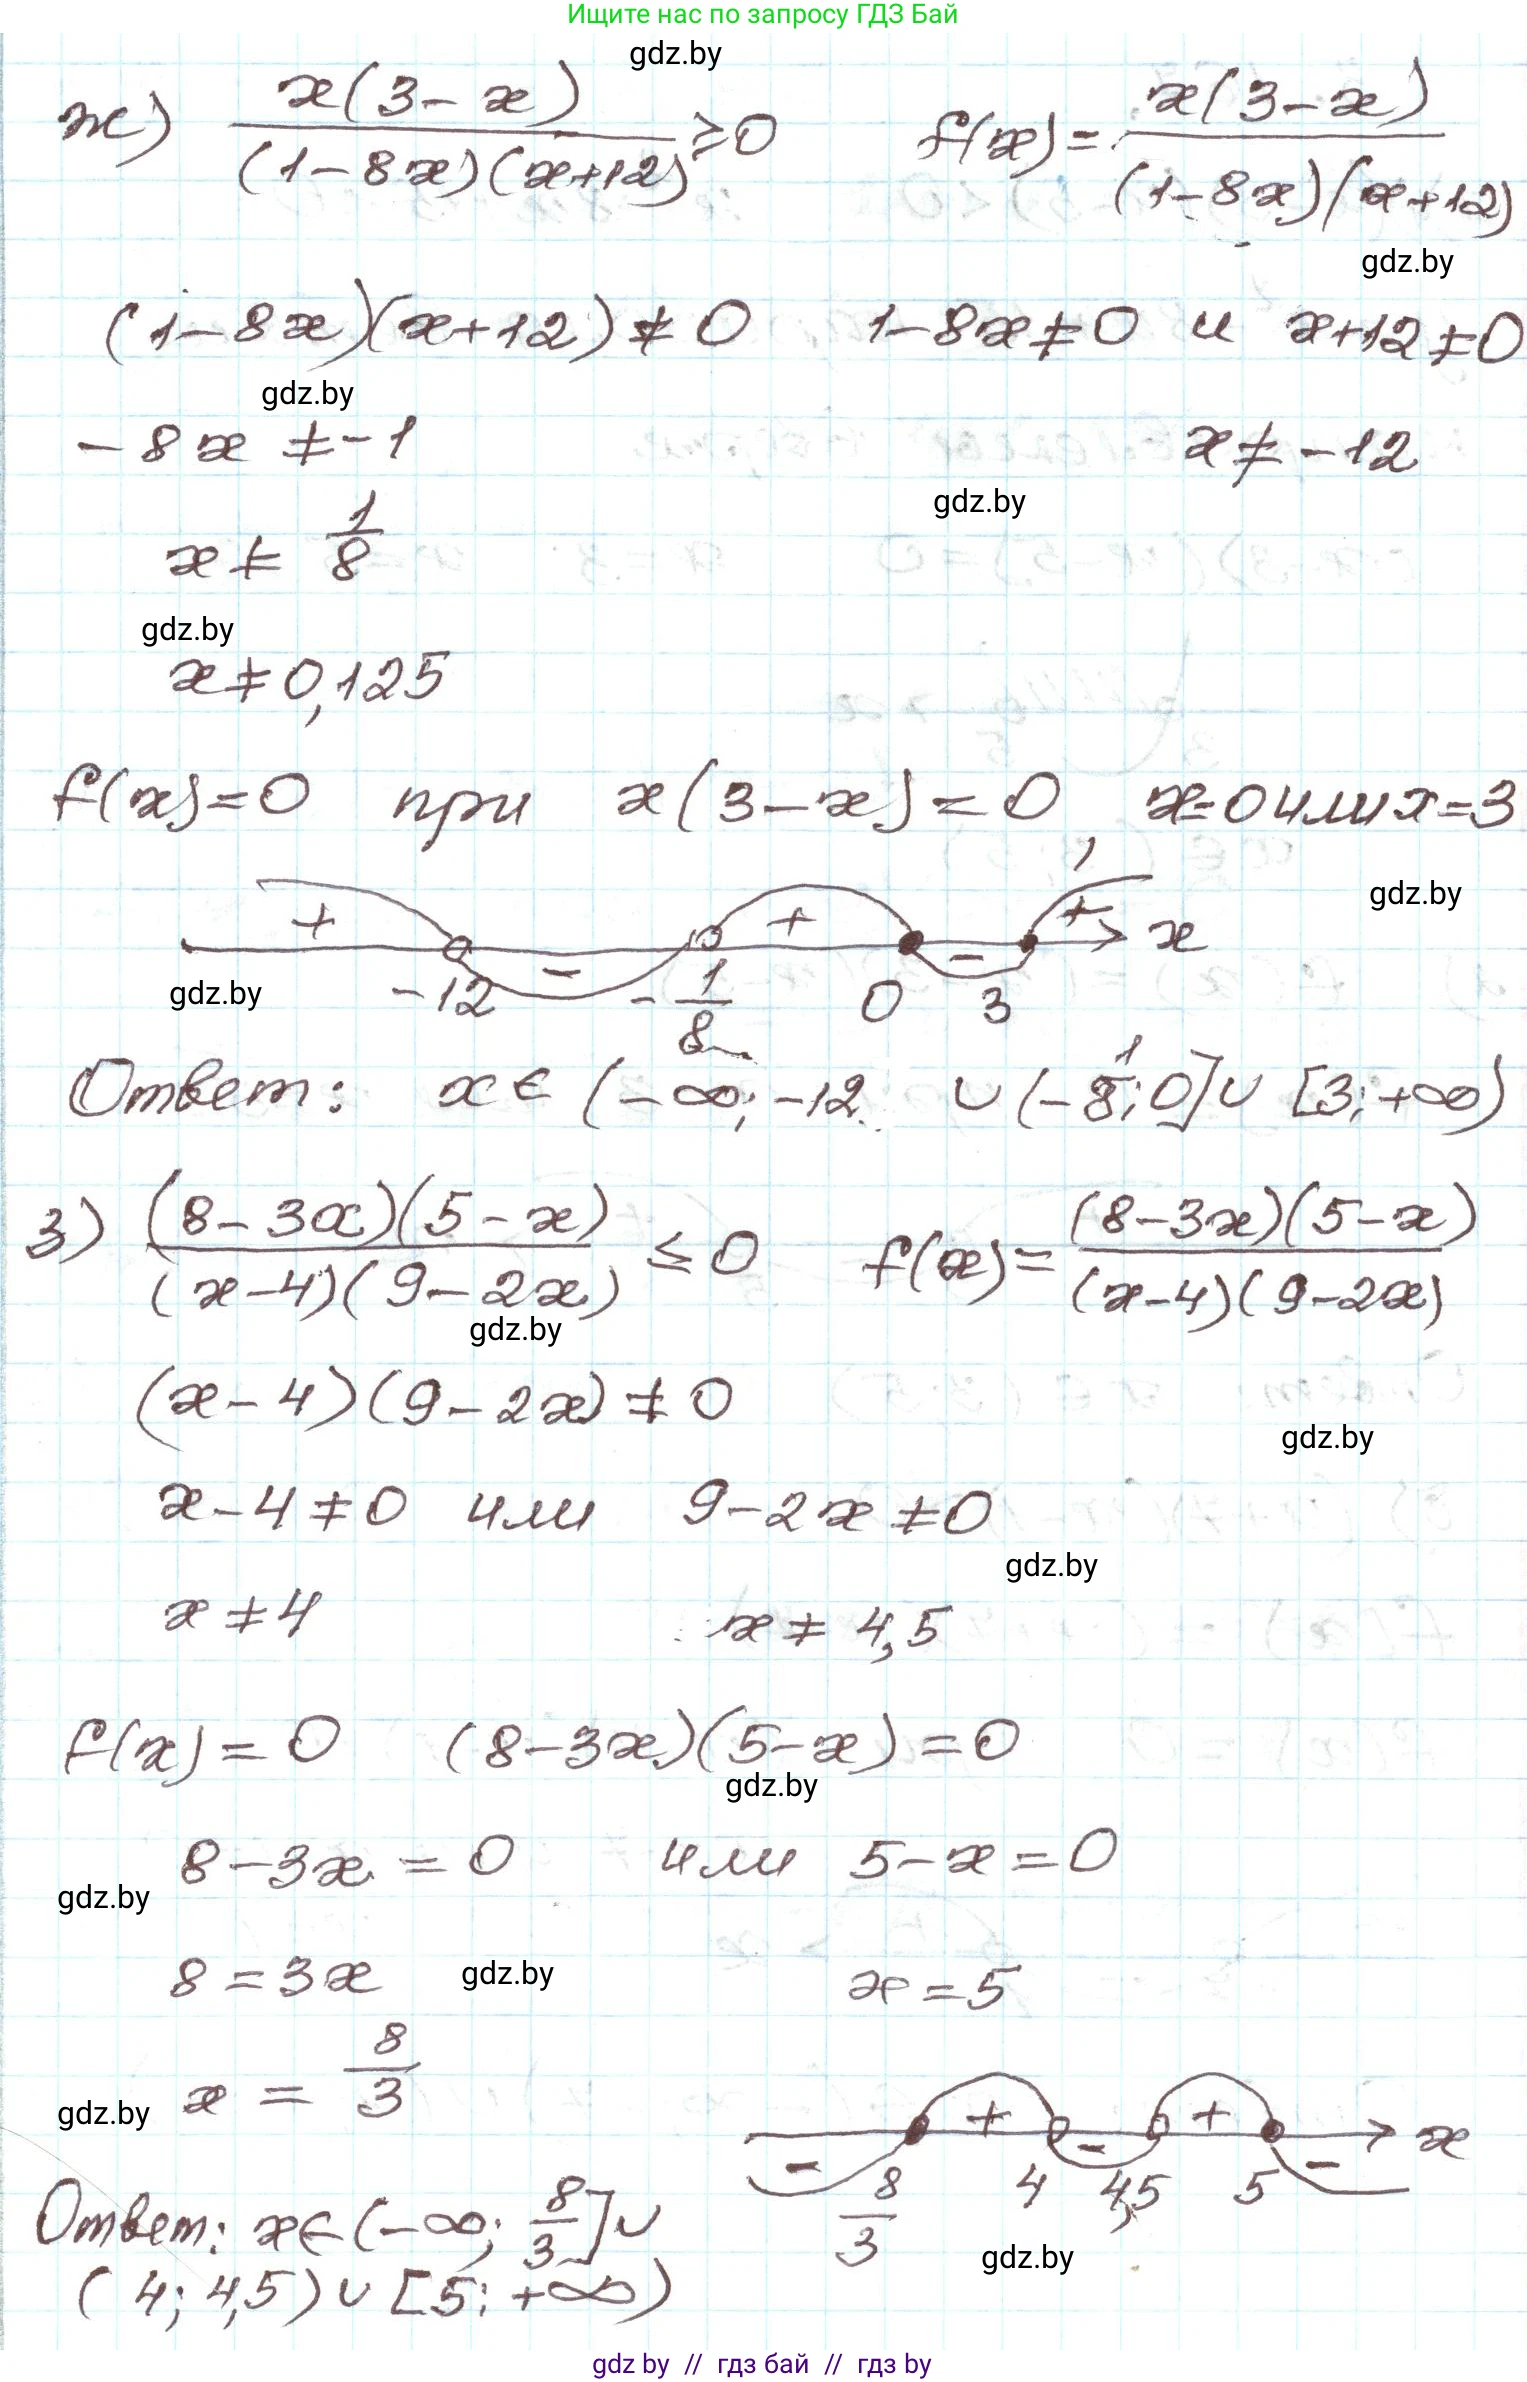 Ищите нас по запросу ГДЗ Бай
gdz.by
ж) x(3-x)/((1-8x)(x+12)) ≥ 0 f(x) = x(3-x)/((1-8x)(x+12))
gdz.by
(1-8x)(x+12) ≠ 0 1-8x ≠ 0 и x+12 ≠ 0
gdz.by
-8x ≠ -1 x ≠ -12
gdz.by
x ≠ 1/8
gdz.by
x ≠ 0,125
f(x) = 0 при x(3-x) = 0, x=0 или x=3
gdz.by
+ - + - + x
gdz.by
-12 -1/8 0 3
Ответ: x ∈ (-∞; -12 ∪ (-1/8; 0] ∪ [3; +∞)
з) (8-3x)(5-x)/((x-4)(9-2x)) ≤ 0 f(x) = (8-3x)(5-x)/((x-4)(9-2x))
gdz.by
(x-4)(9-2x) ≠ 0
gdz.by
x-4 ≠ 0 или 9-2x ≠ 0
gdz.by
x ≠ 4 x ≠ 4,5
f(x) = 0 (8-3x)(5-x) = 0
gdz.by
8-3x = 0 или 5-x = 0
gdz.by
8 = 3x gdz.by x = 5
gdz.by x = 8/3
- + - + - x
8/3 4 4,5 5
Ответ: x ∈ (-∞; 8/3] ∪
gdz.by
(4; 4,5) ∪ [5; +∞)
gdz by // гдз бай // гдз by